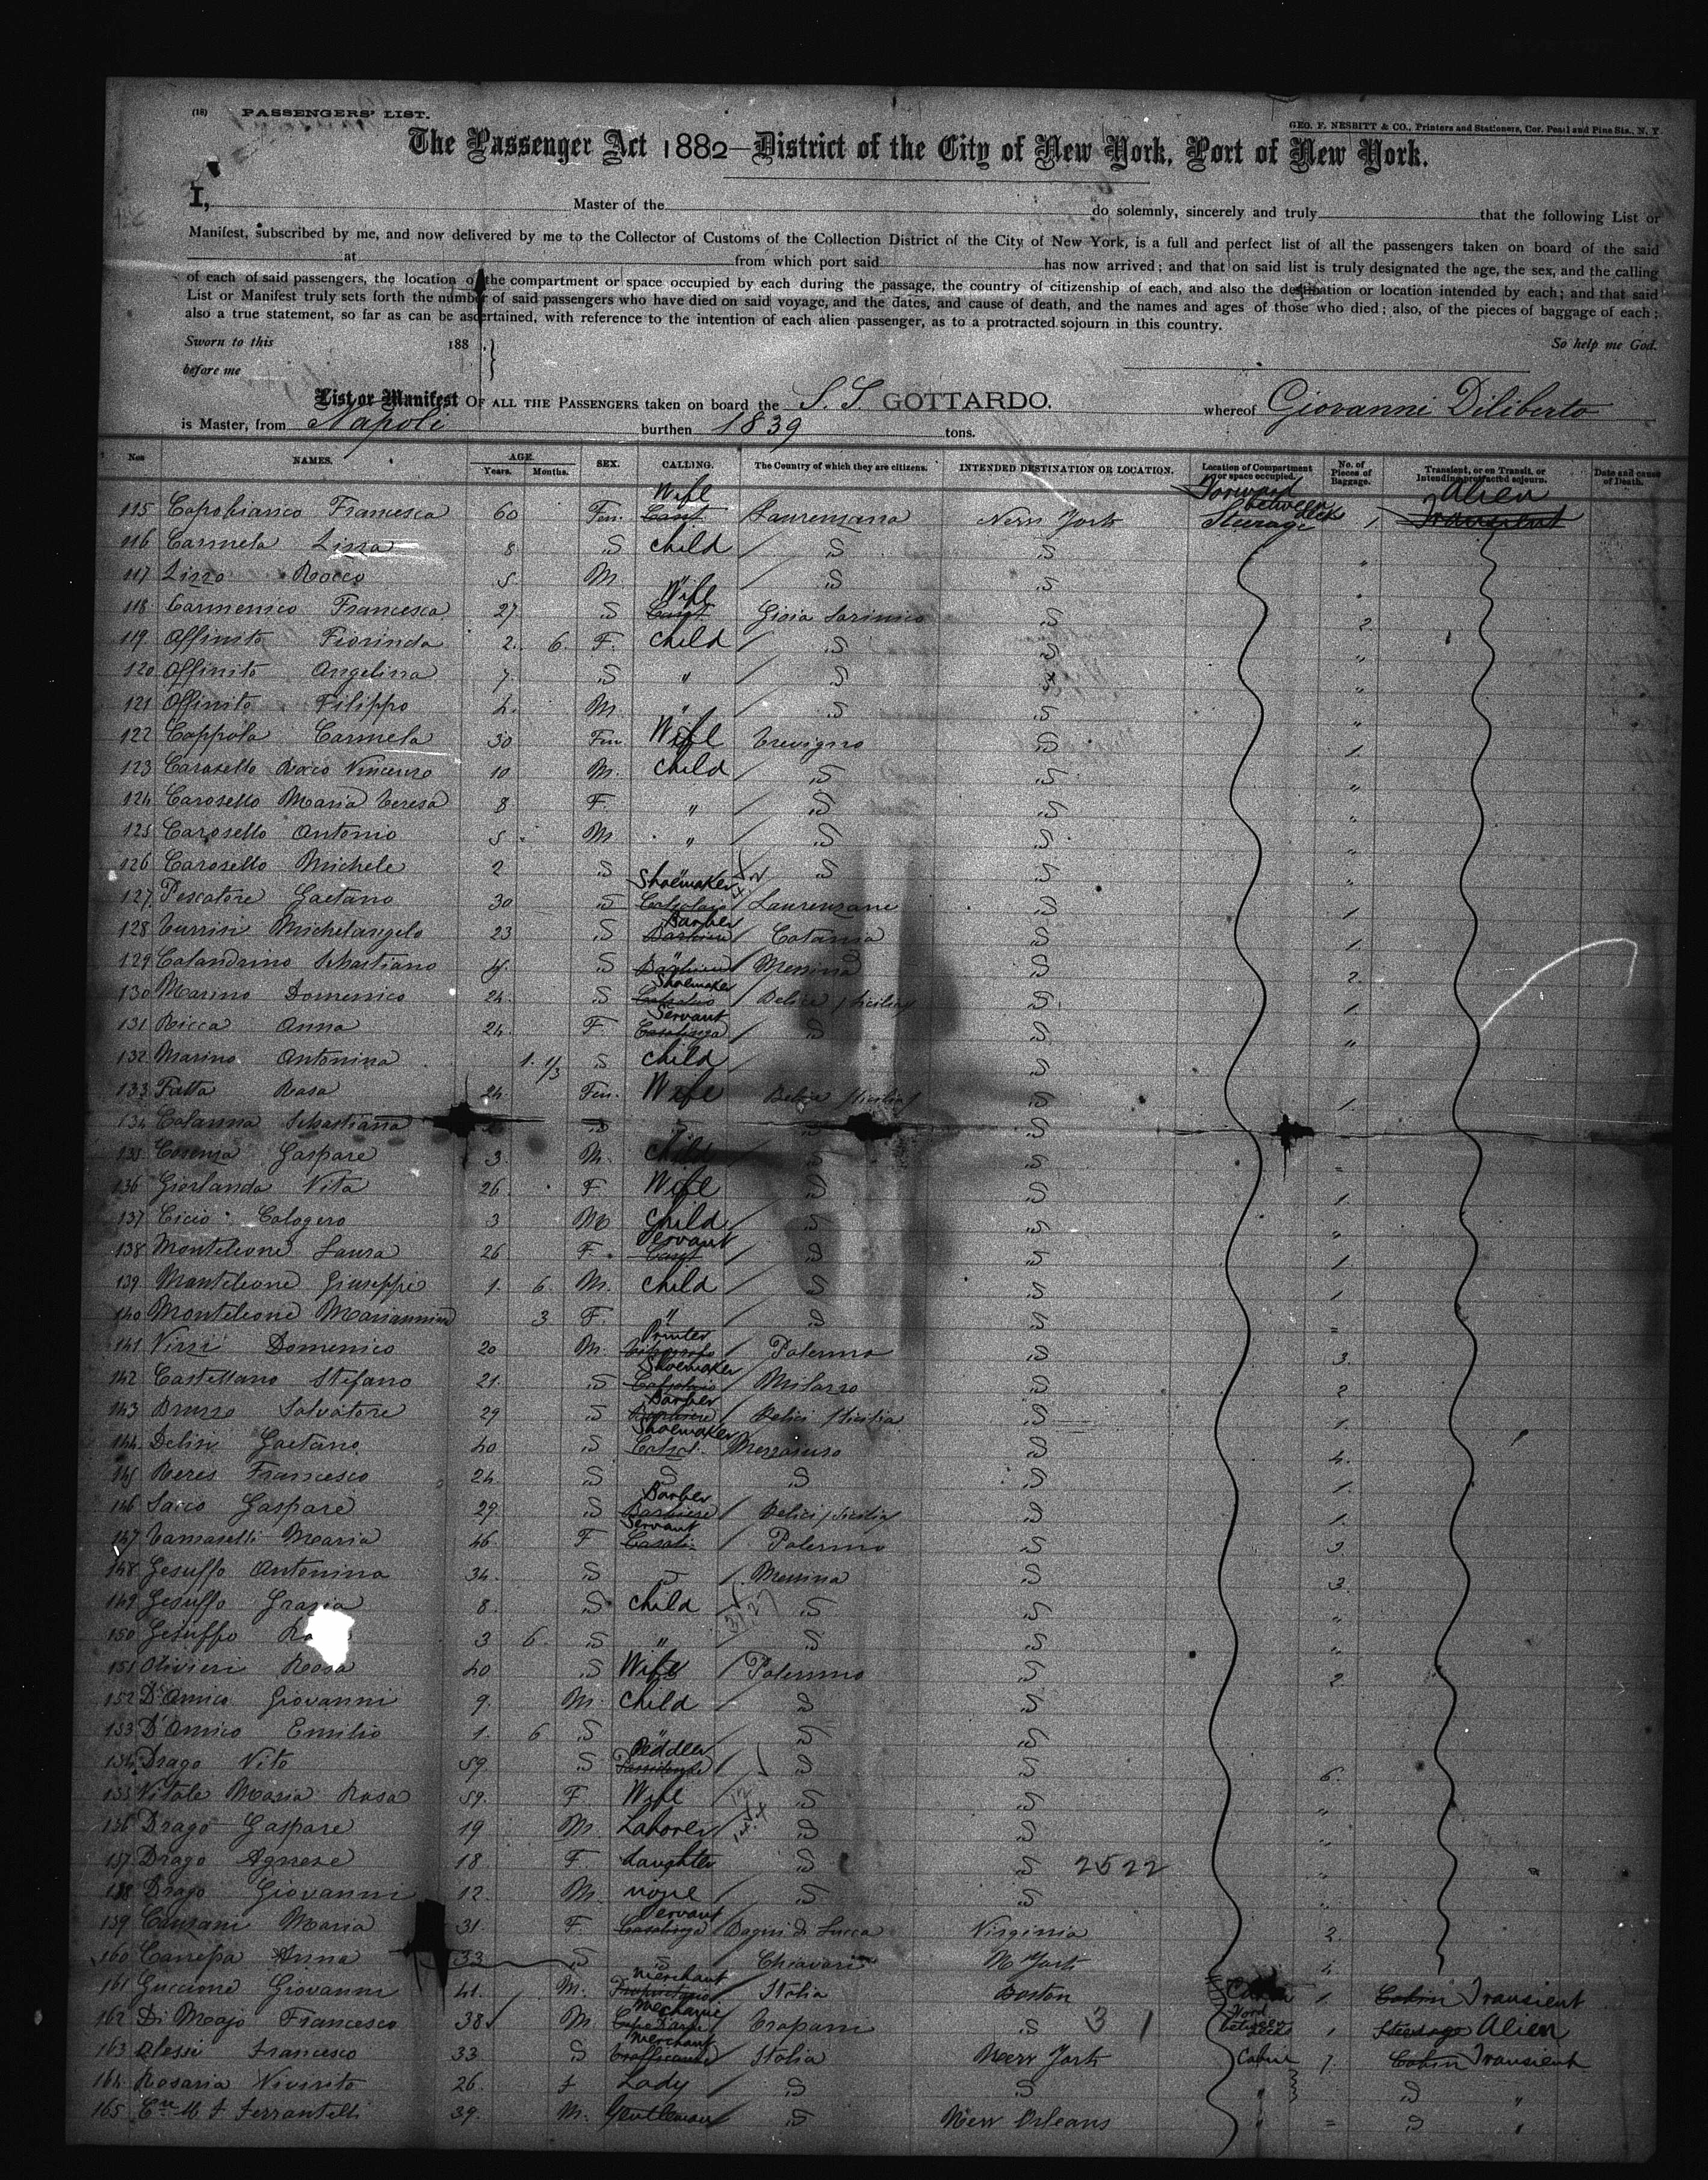 (16) PASSENGERS' LIST.
GEO. F. NESBITT & CO., Printers and Stationers, Cor. Pearl and Pine Sts., N. Y.
The Passenger Act 1882—District of the City of New York, Port of New York.
I, Master of the do solemnly, sincerely and truly that the following List or
Manifest, subscribed by me, and now delivered by me to the Collector of Customs of the Collection District of the City of New York, is a full and perfect list of all the passengers taken on board of the said
at from which port said has now arrived; and that on said list is truly designated the age, the sex, and the calling
of each of said passengers, the location of the compartment or space occupied by each during the passage, the country of citizenship of each, and also the destination or location intended by each; and that said
List or Manifest truly sets forth the number of said passengers who have died on said voyage, and the dates, and cause of death, and the names and ages of those who died; also, of the pieces of baggage of each;
also a true statement, so far as can be ascertained, with reference to the intention of each alien passenger, as to a protracted sojourn in this country.
Sworn to this 188 . } So help me God.
before me
List or Manifest OF ALL THE PASSENGERS taken on board the S. S. GOTTARDO. whereof Giovanni Diliberto
is Master, from Napoli burthen 1839 tons.
Nos NAMES. AGE. Years. Months. SEX. CALLING. The Country of which they are citizens. INTENDED DESTINATION OR LOCATION. Location of Compartment or space occupied. No. of Pieces of Baggage. Transient, or in Transit, or Intending protracted sojourn. Date and cause of Death.
115 Capobianco Francesca 60 Fem. Wife Laurenzana New York Forward between deck Steerage 1 Alien Transient
116 Carmela Lizza 8 S child / S S "
117 Lizzo Rocco 5 M. " / S S "
118 Carmenico Francesca 27 S Wife S 2
119 Affinito Fiorinda 2. 6. F. child / S S "
120 Affinito Angelina 7 S " / S S "
121 Affinito Filippo 4. M. " / S S "
122 Coppola Carmela 30 Fem Wife / Trevigno S 1
123 Carosello Rocco Vincenzo 10 M. child / S S "
124 Carosello Maria Teresa 8 F. " / S S "
125 Carosello Antonio 5 M " / S S "
126 Carosello Michele 2 S " S S "
127 Pescatore Gaetano 30 S Shoemaker / Laurenzane S 1
128 Turrisi Michelangelo 23 S Barber Barbiere / Catania S 1
129 Calandrino Sebastiano S " Barbiere / Messina S 2
130 Marino Domenico 24. S Shoemaker / Sicilia S 1
131 Ricca Anna 24 F Servant Casalinga / S S "
132 Marino Antonina 1. 1/3 S child / S
133 Fatta Rosa 24 Fem. Wife S 1
134 Colanna Sebastiana S
135 Cosenza Gaspare 3. M. child S S
136 Giorlanda Vita 26 F Wife / S S 1
137 Cicio Calogero 3 M child / S S "
138 Monteleone Laura 26 F. Servant / S S 1
139 Monteleone Giuseppe 1. 6 M. child / S S 1
140 Monteleone Mariannina 3 F. " / S S
141 Virzi Domenico 20 M. Printer / Palermo S 3.
142 Castellano Stefano 21. S Shoemaker / Milazzo S 2
143 Bruzzo Salvatore 29 S Barber Barbiere / Sicilia S 1.
144 Delisi Gaetano 40 S Shoemaker / Mezzojuso S 4.
145 Reres Francesco 24. S S S S 1.
146 Sacco Gaspare 29 S Barber Barbiere / Sicilia S 1.
147 Tamaselli Maria 46 F Servant / Palermo S 3.
148 Gesuffo Antonina 34. S S / Messina S 3.
149 Gesuffo Grazia 8. S child / S S "
150 Gesuffo 3 6. S " S S "
151 Olivieri Rosa 40 S Wife / Palermo S 2.
152 D'Amico Giovanni 9. M. child S S
153 D'Amico Emilio 1. 6 S " S S
154 Drago Vito 59 S Peddler S S 6.
155 Vitale Maria Rosa 59. F. Wife S S "
156 Drago Gaspare 19 M. Laborer / S S "
157 Drago Agnese 18 F daughter S S 2522 "
158 Drago Giovanni 12. M. none / S S "
159 Canzani Maria 31 F. Servant Casalinga Bagni di Lucca Virginia 2.
160 Canepa Anna 33 S S Chiavari N York
161 Guccione Giovanni 41. M. merchant / Italia Boston Cabin 1. Cabin Transient
162 Di Majo Francesco 38 M. mechanic / Trapani S 3 1 Ford between decks 1 Steerage Alien
163 Alessi Francesco 33 S merchant Trafficante / Italia New York Cabin 7. Cabin Transient
164 Rosaria Vivirito 26. f Lady / S S " S "
165 Ferrantelli 39. M. Gentleman / S New Orleans " = S "